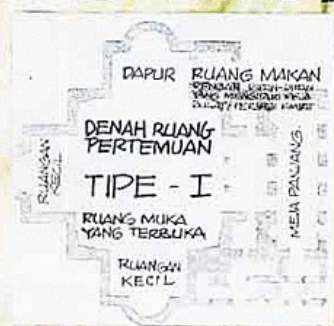 DAPUR
RUANG MAKAN
DENGAN
YANG
DENAH RUANG
PERTEMUAN
TIPE - I
RUANG MUKA
YANG TERBUKA
RUANGAN
KECIL
RUANGAN
KECIL
MEJA PANJANG